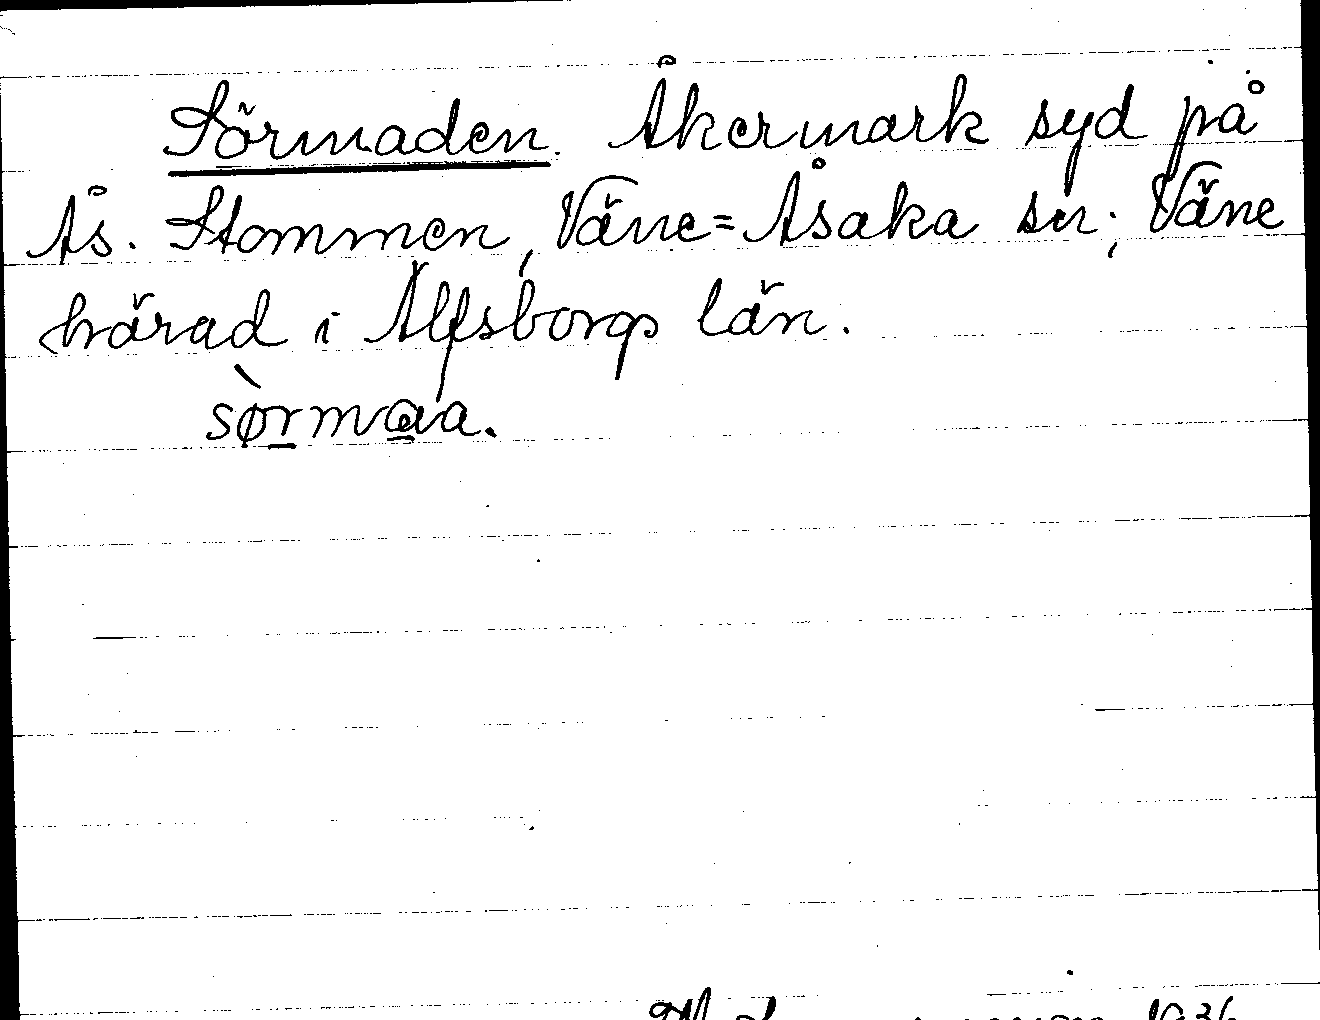 Sörmaden. Åkermark syd på
Ås. Stommen, Väne=Åsaka sn; Väne
härad i Älfsborgs län.
sø̀rmaa.
1936